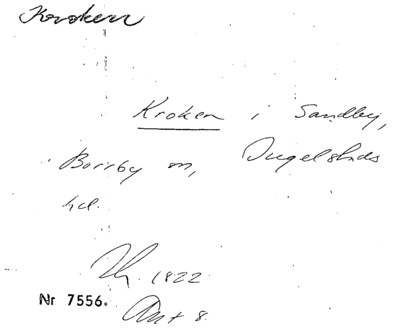 Kroken
Kroken i Sandby,
Borrby sn, Ingelstads
hd.
1822
Nr 7556. Ant 8.